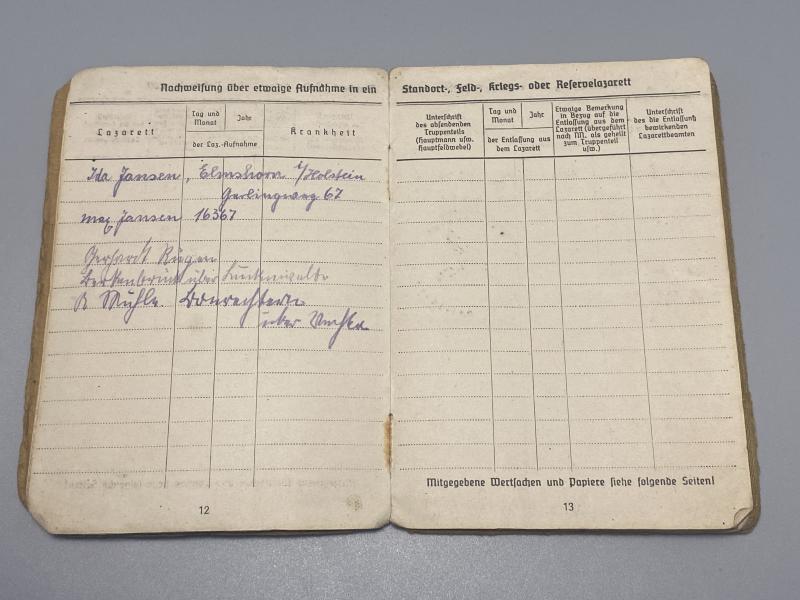 Nachweisung über etwaige Aufnahme in ein
Lazarett
Tag und Monat
Jahr
der Laz.-Aufnahme
Krankheit
Ida Jansen, Elmshorn i/Holstein
67
Max Jansen 16367
Gerhardt
über Luckenwalde
Mühle
über
12
Standort-, Feld-, Kriegs- oder Reservelazarett
Unterschrift
des absendenden
Truppenteils
(Hauptmann usw.
Hauptfeldwebel)
Tag und Monat
Jahr
der Entlassung aus
dem Lazarett
Etwaige Bemerkung
in Bezug auf die
Entlassung aus dem
Lazarett (übergeführt
nach M. als geheilt
zum Truppenteil
usw.)
Unterschrift
des die Entlassung
bewirkenden
Lazarettbeamten
Mitgegebene Wertsachen und Papiere siehe folgende Seiten!
13